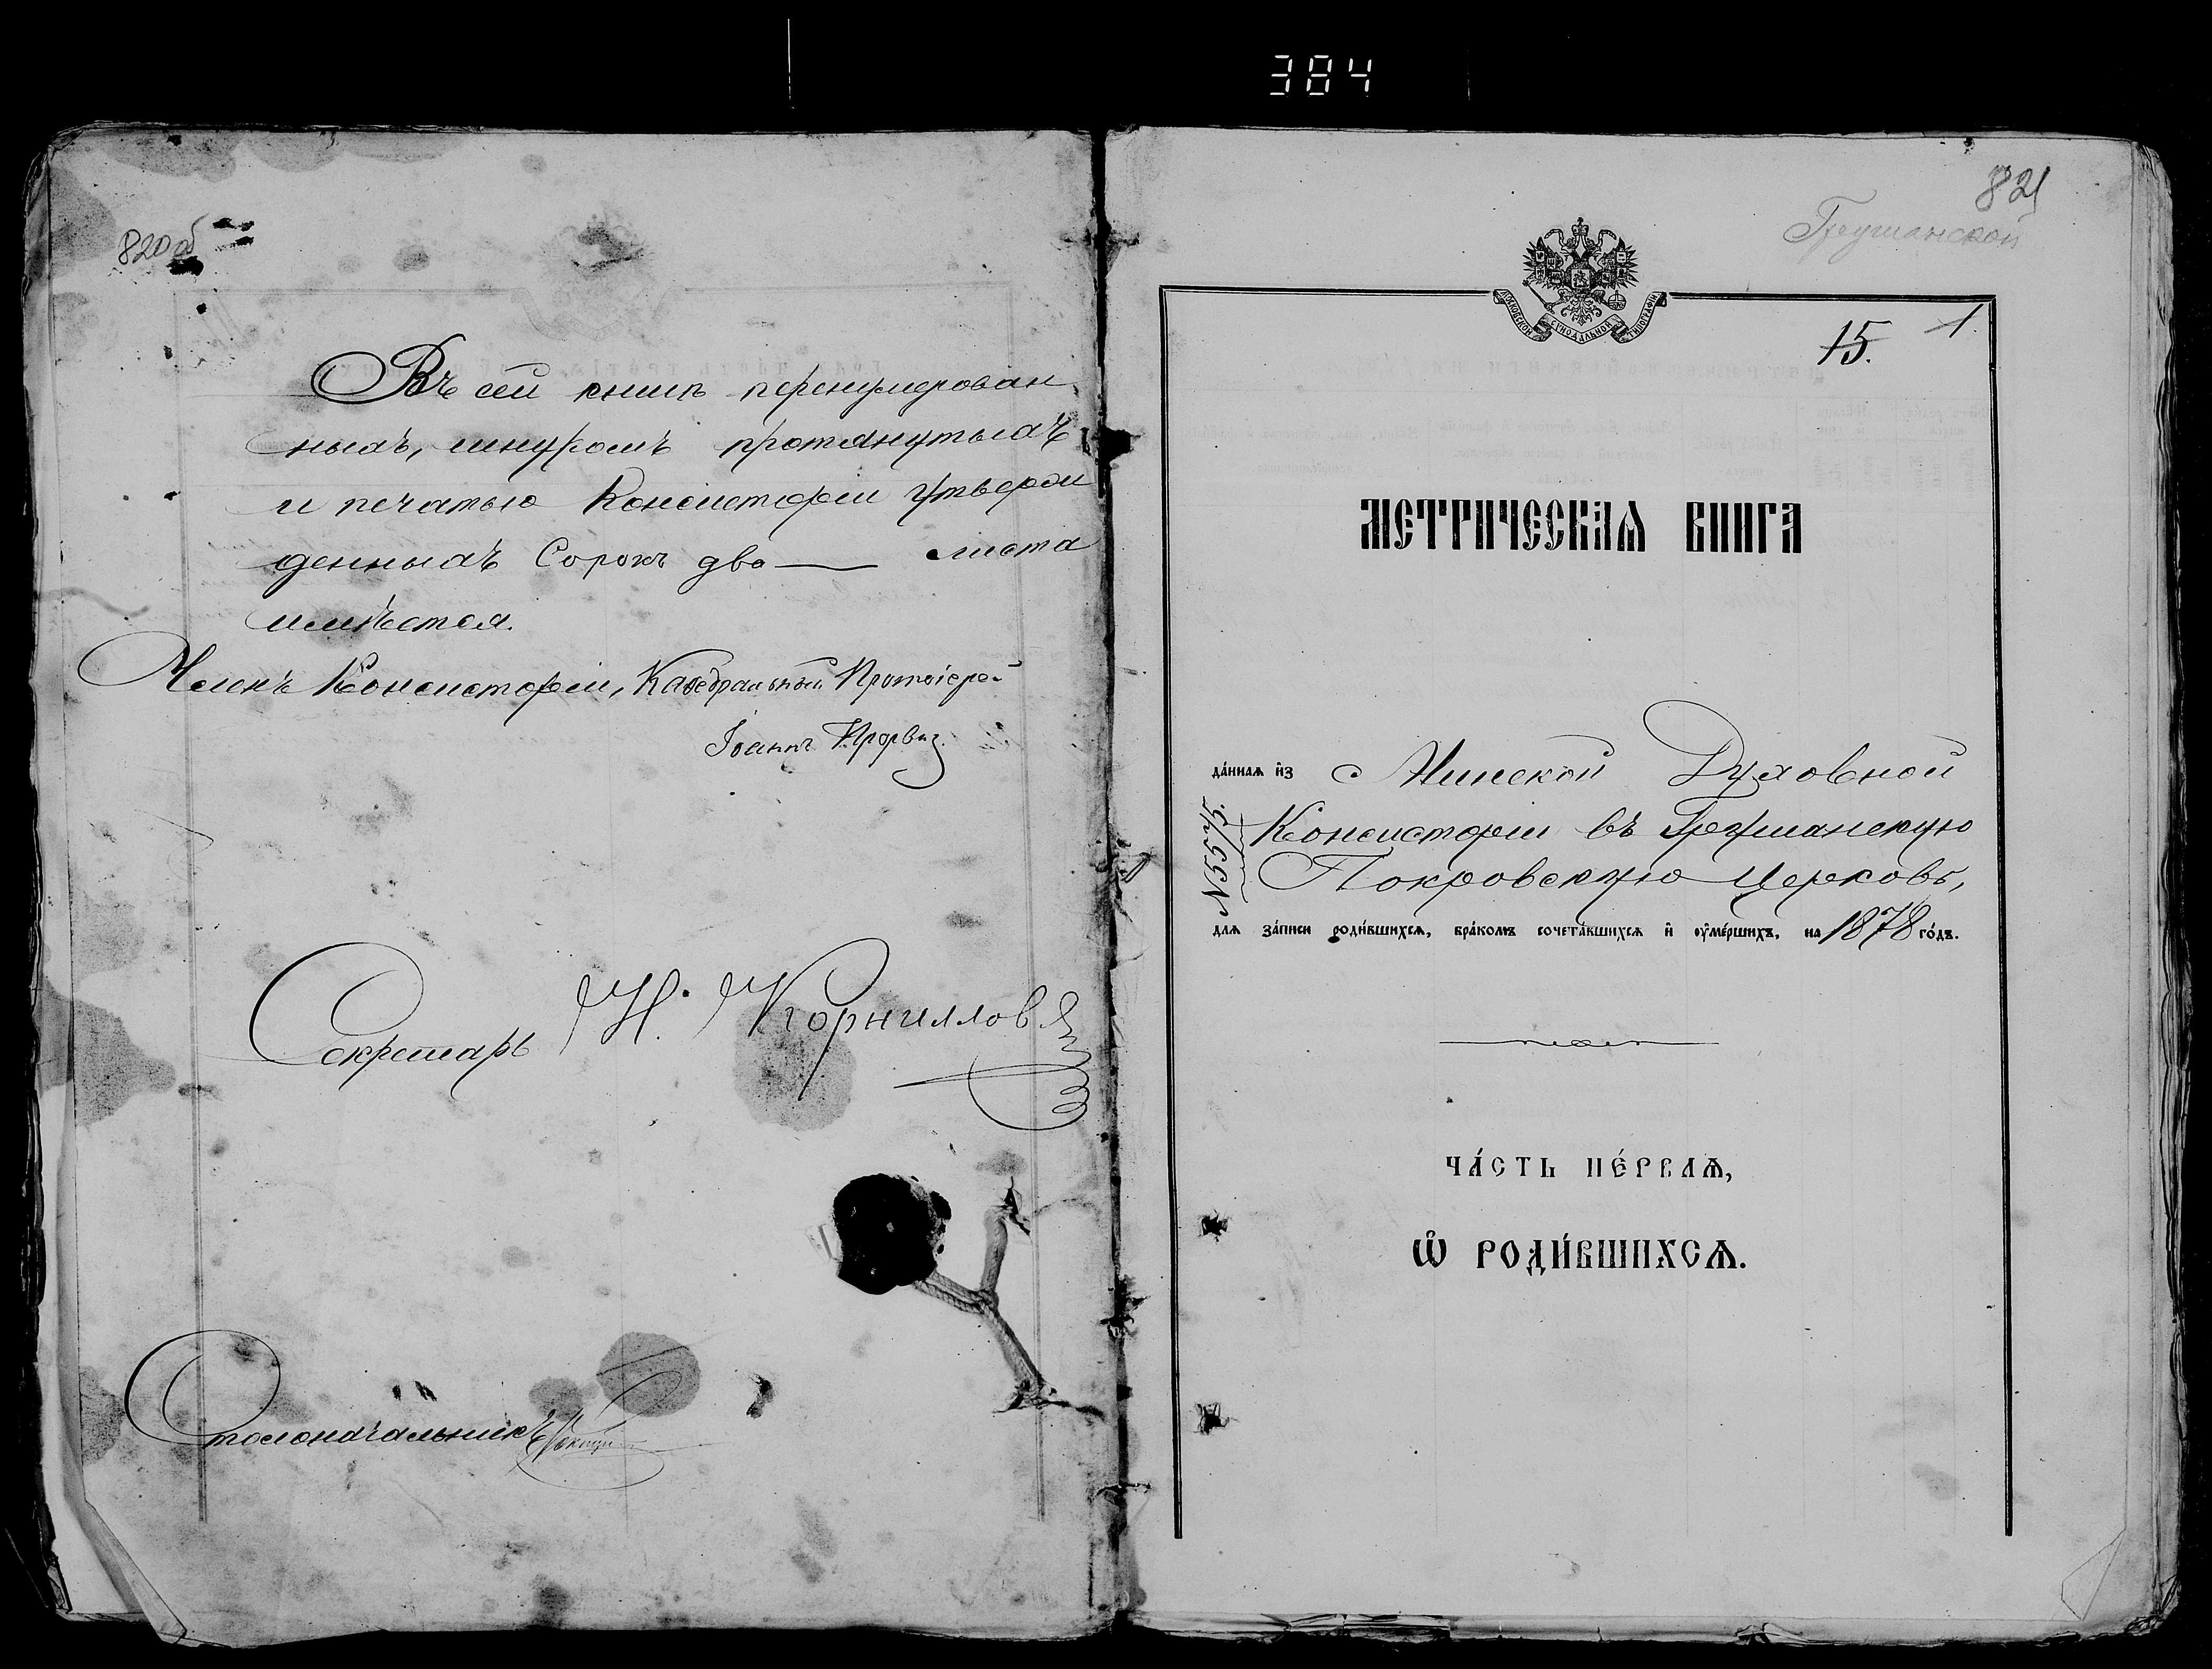 384
820 об
Въ сей книгѣ перенумерован
ныхъ, шнуромъ протянутыхъ
и печатью Консисторіи утверж
денныхъ Сорокъ два листа
имѣется.
Членъ Консисторіи, Каѳедральный Протоіерей
Іоаннъ
Секретарь Н. Корнилловъ
Столоначальникъ
821
Грушанской
МОСКОВСКОЙ СѴНОДАЛЬНОЙ ТИПОГРАФІИ
15. 1.
МЕТРИЧЕСКАѦ КНИГА
да́ннаѧ и҆з Минской Духовной
Консисторіи въ Грушанскую
Покровскую Церковь,
№ 5575.
длѧ за́писи роди́вшихсѧ, бра́комъ сочета́вшихсѧ и҆ ᲂу҆ме́ршихъ, на 1878 го́дъ.
ЧА́СТЬ ПЕ́РВАѦ,
Ѡ҆ РОДИ́ВШИХСѦ.